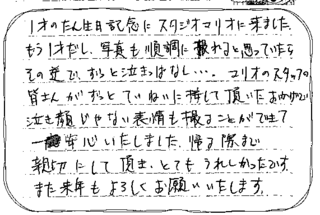 1才のたん生日記念にスタジオマリオに来ました。
もう1才だし、写真も順調に撮れると思っていたら
その逆で、ずっと泣きっぱなし…。マリオのスタッフの
皆さんがずっとていねいに接して頂いたおかげで
泣き顔じゃない表情も撮ることができて
一安心いたしました。帰る際まで
親切にして頂き、とてもうれしかったです。
また来年もよろしくお願いいたします。